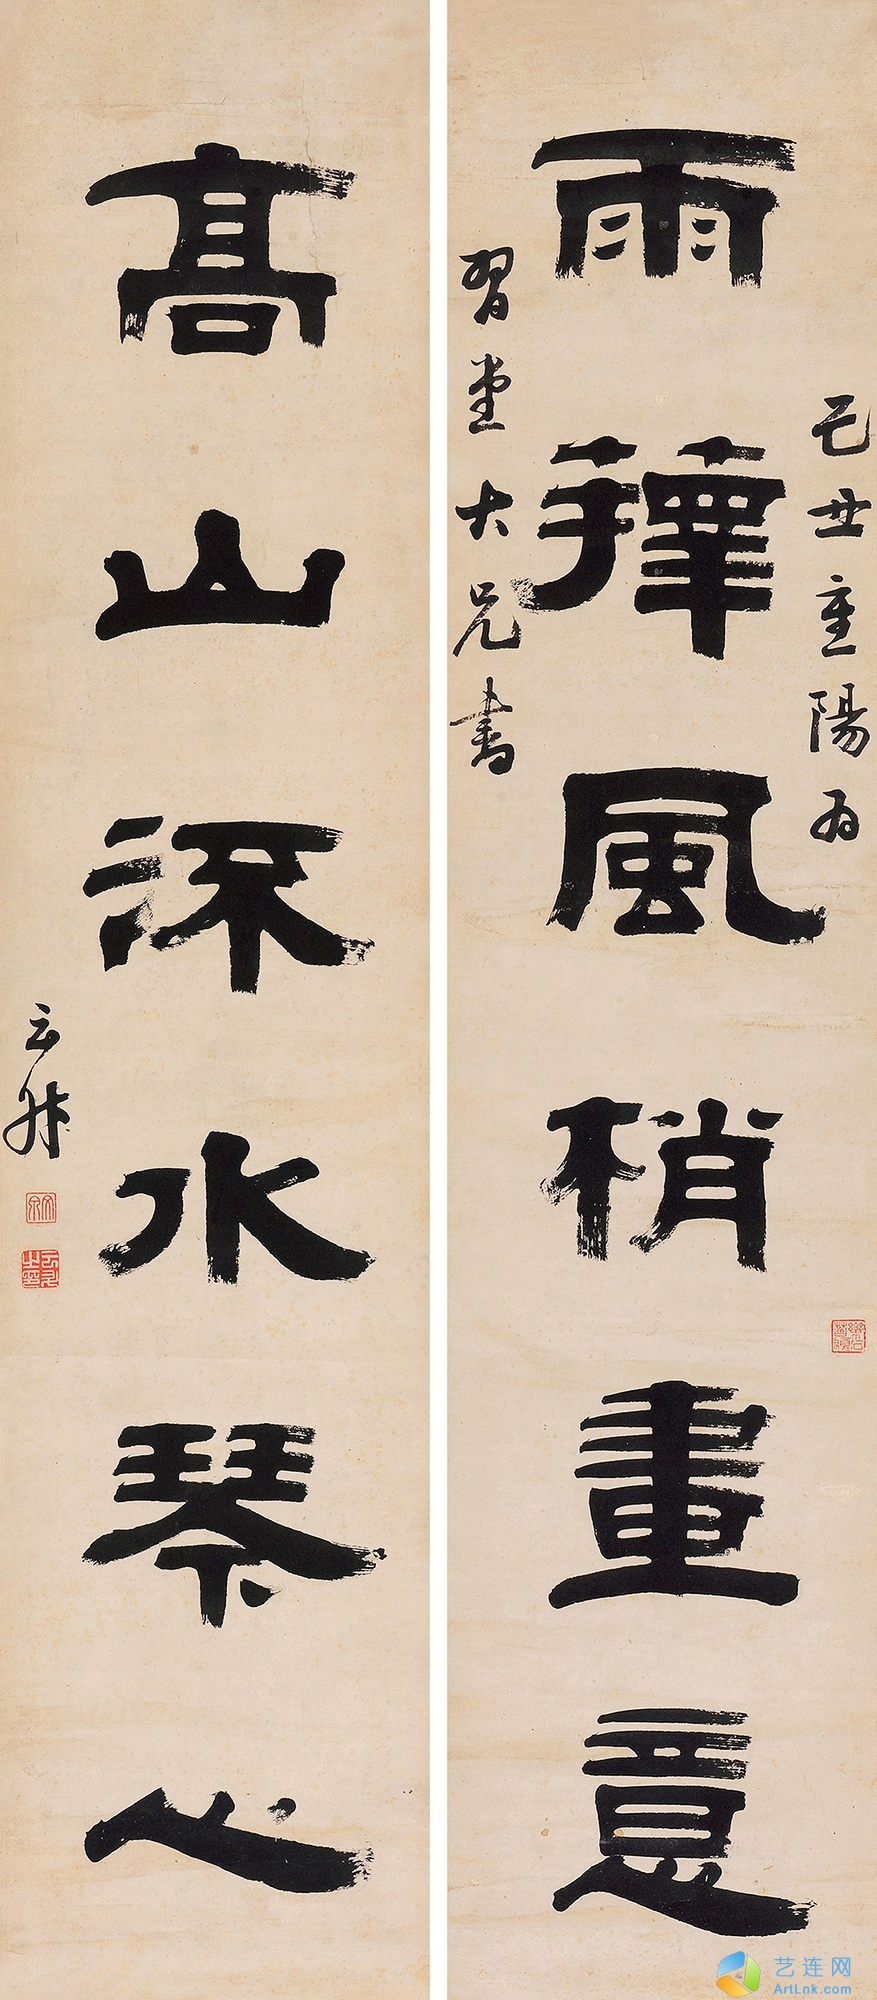 雨籜風梢畫意
己丑重陽為
習堂大兄書
高山流水琴心
云
艺连网
ArtLnk.com